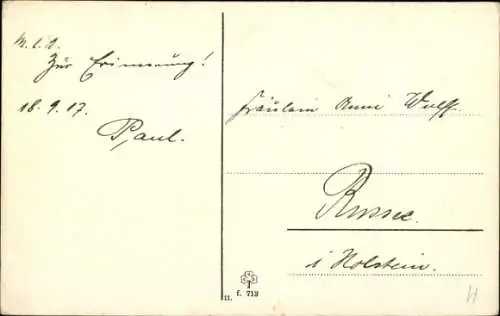 M. l. A.
Zur Erinnerung!
18.9.17.
Paul.
Fräulein Anni Wulf.
Russee.
i Holstein.
11. f. 712
H